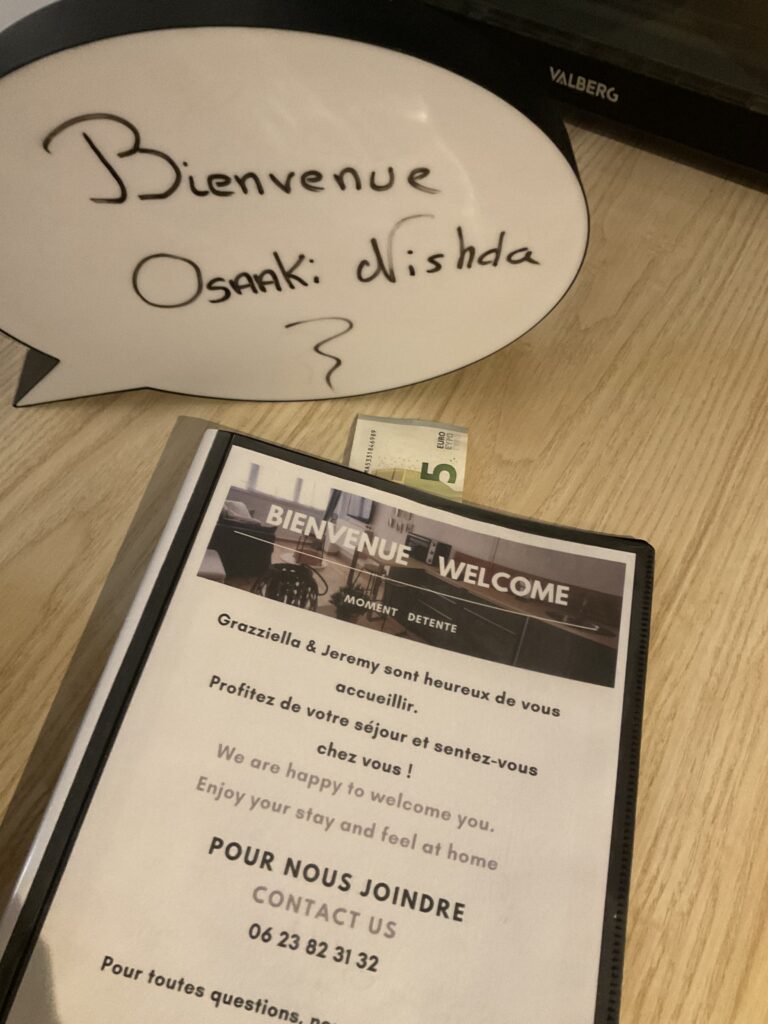 VALBERG
Bienvenue
Osaaki Nishda
5
EURO
EYPO
BIENVENUE WELCOME
MOMENT DETENTE
Grazziella & Jeremy sont heureux de vous
accueillir.
Profitez de votre séjour et sentez-vous
chez vous !
We are happy to welcome you.
Enjoy your stay and feel at home
POUR NOUS JOINDRE
CONTACT US
06 23 82 31 32
Pour toutes questions,